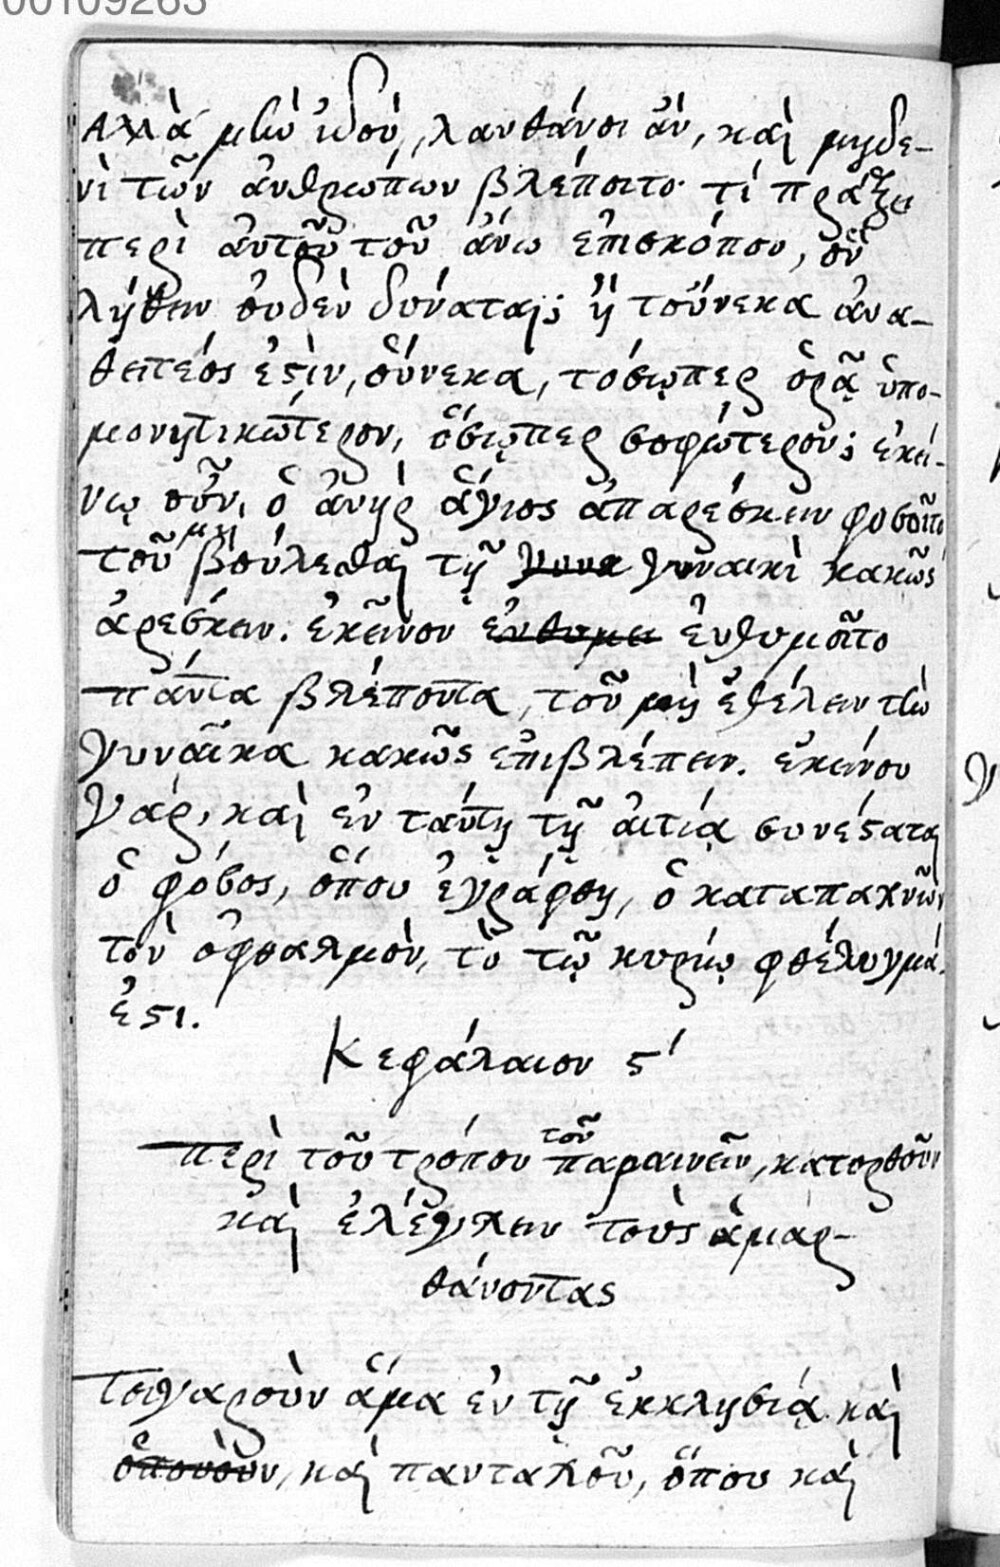 00109263
Ἀλλὰ μὴν ἰδού, λανθάνοι ἄν, καὶ μηδε-
νὶ τῶν ἀνθρώπων βλέποιτο· τί πράξει
περὶ ἀυτοῦ τοῦ ἄνω ἐπισκόπου, ὃν
λήθειν ὀυδὲν δύναται; ἢ τούνεκα ἀνα-
θετέος ἐστὶν, οὕνεκα, τόσῳπερ ὁρᾷ ὑπο-
μονητικώτερον, ὅσῳπερ σοφώτερον; ἐκεί-
νῳ οὖν, ὁ ἀνὴρ ἅγιος ἀπαρέσκειν φοβοῖτο
τοῦ μὴ βούλεσθαι τῇ γυνα γυναικὶ κακῶς
ἀρέσκειν. ἐκεῖνον ἐνθυμει ἐνθυμοῖτο
πάντα βλέποντα, τοῦ μὴ ἐθέλειν τὴν
γυναῖκα κακῶς ἐπιβλέπειν. ἐκείνου
γάρ, καὶ ἐν ταύτῃ τῇ ἀιτίᾳ συνέσταται
ὁ φόβος, ὅπου ἐγράφθη, ὁ καταπαχνῶν
τὸν ὀφθαλμὸν, τὸ τῷ κυρίῳ φθέλυγμά
ἐστι.
Κεφάλαιον ϛ΄
Περὶ τοῦ τρόπου τοῦ παραινεῖν, κατορθοῦν
καὶ ἐλέγχειν τοὺς ἁμαρ-
θάνοντας
Τοιγαροῦν ἅμα ἐν τῇ ἐκκλησίᾳ καὶ
ὁπουοῦν, καὶ πανταχοῦ, ὅπου καὶ